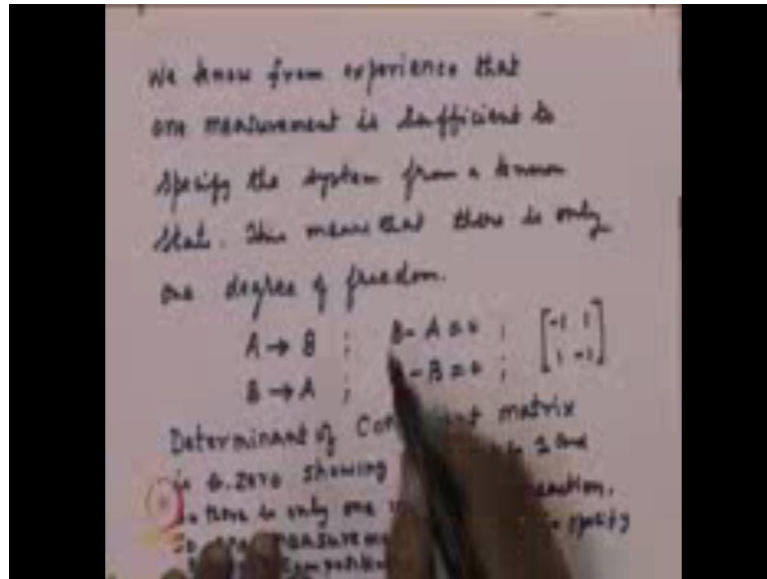 We know from experience that
one measurement is sufficient to
specify the system from a known
state. This means that there is only
one degree of freedom.
A → B ; B - A = 0 ; [-1 1
B → A ; A - B = 0 ; 1 -1]
Determinant of matrix
is zero showing 1 and
there is only one reaction.
So measurement specify
composition